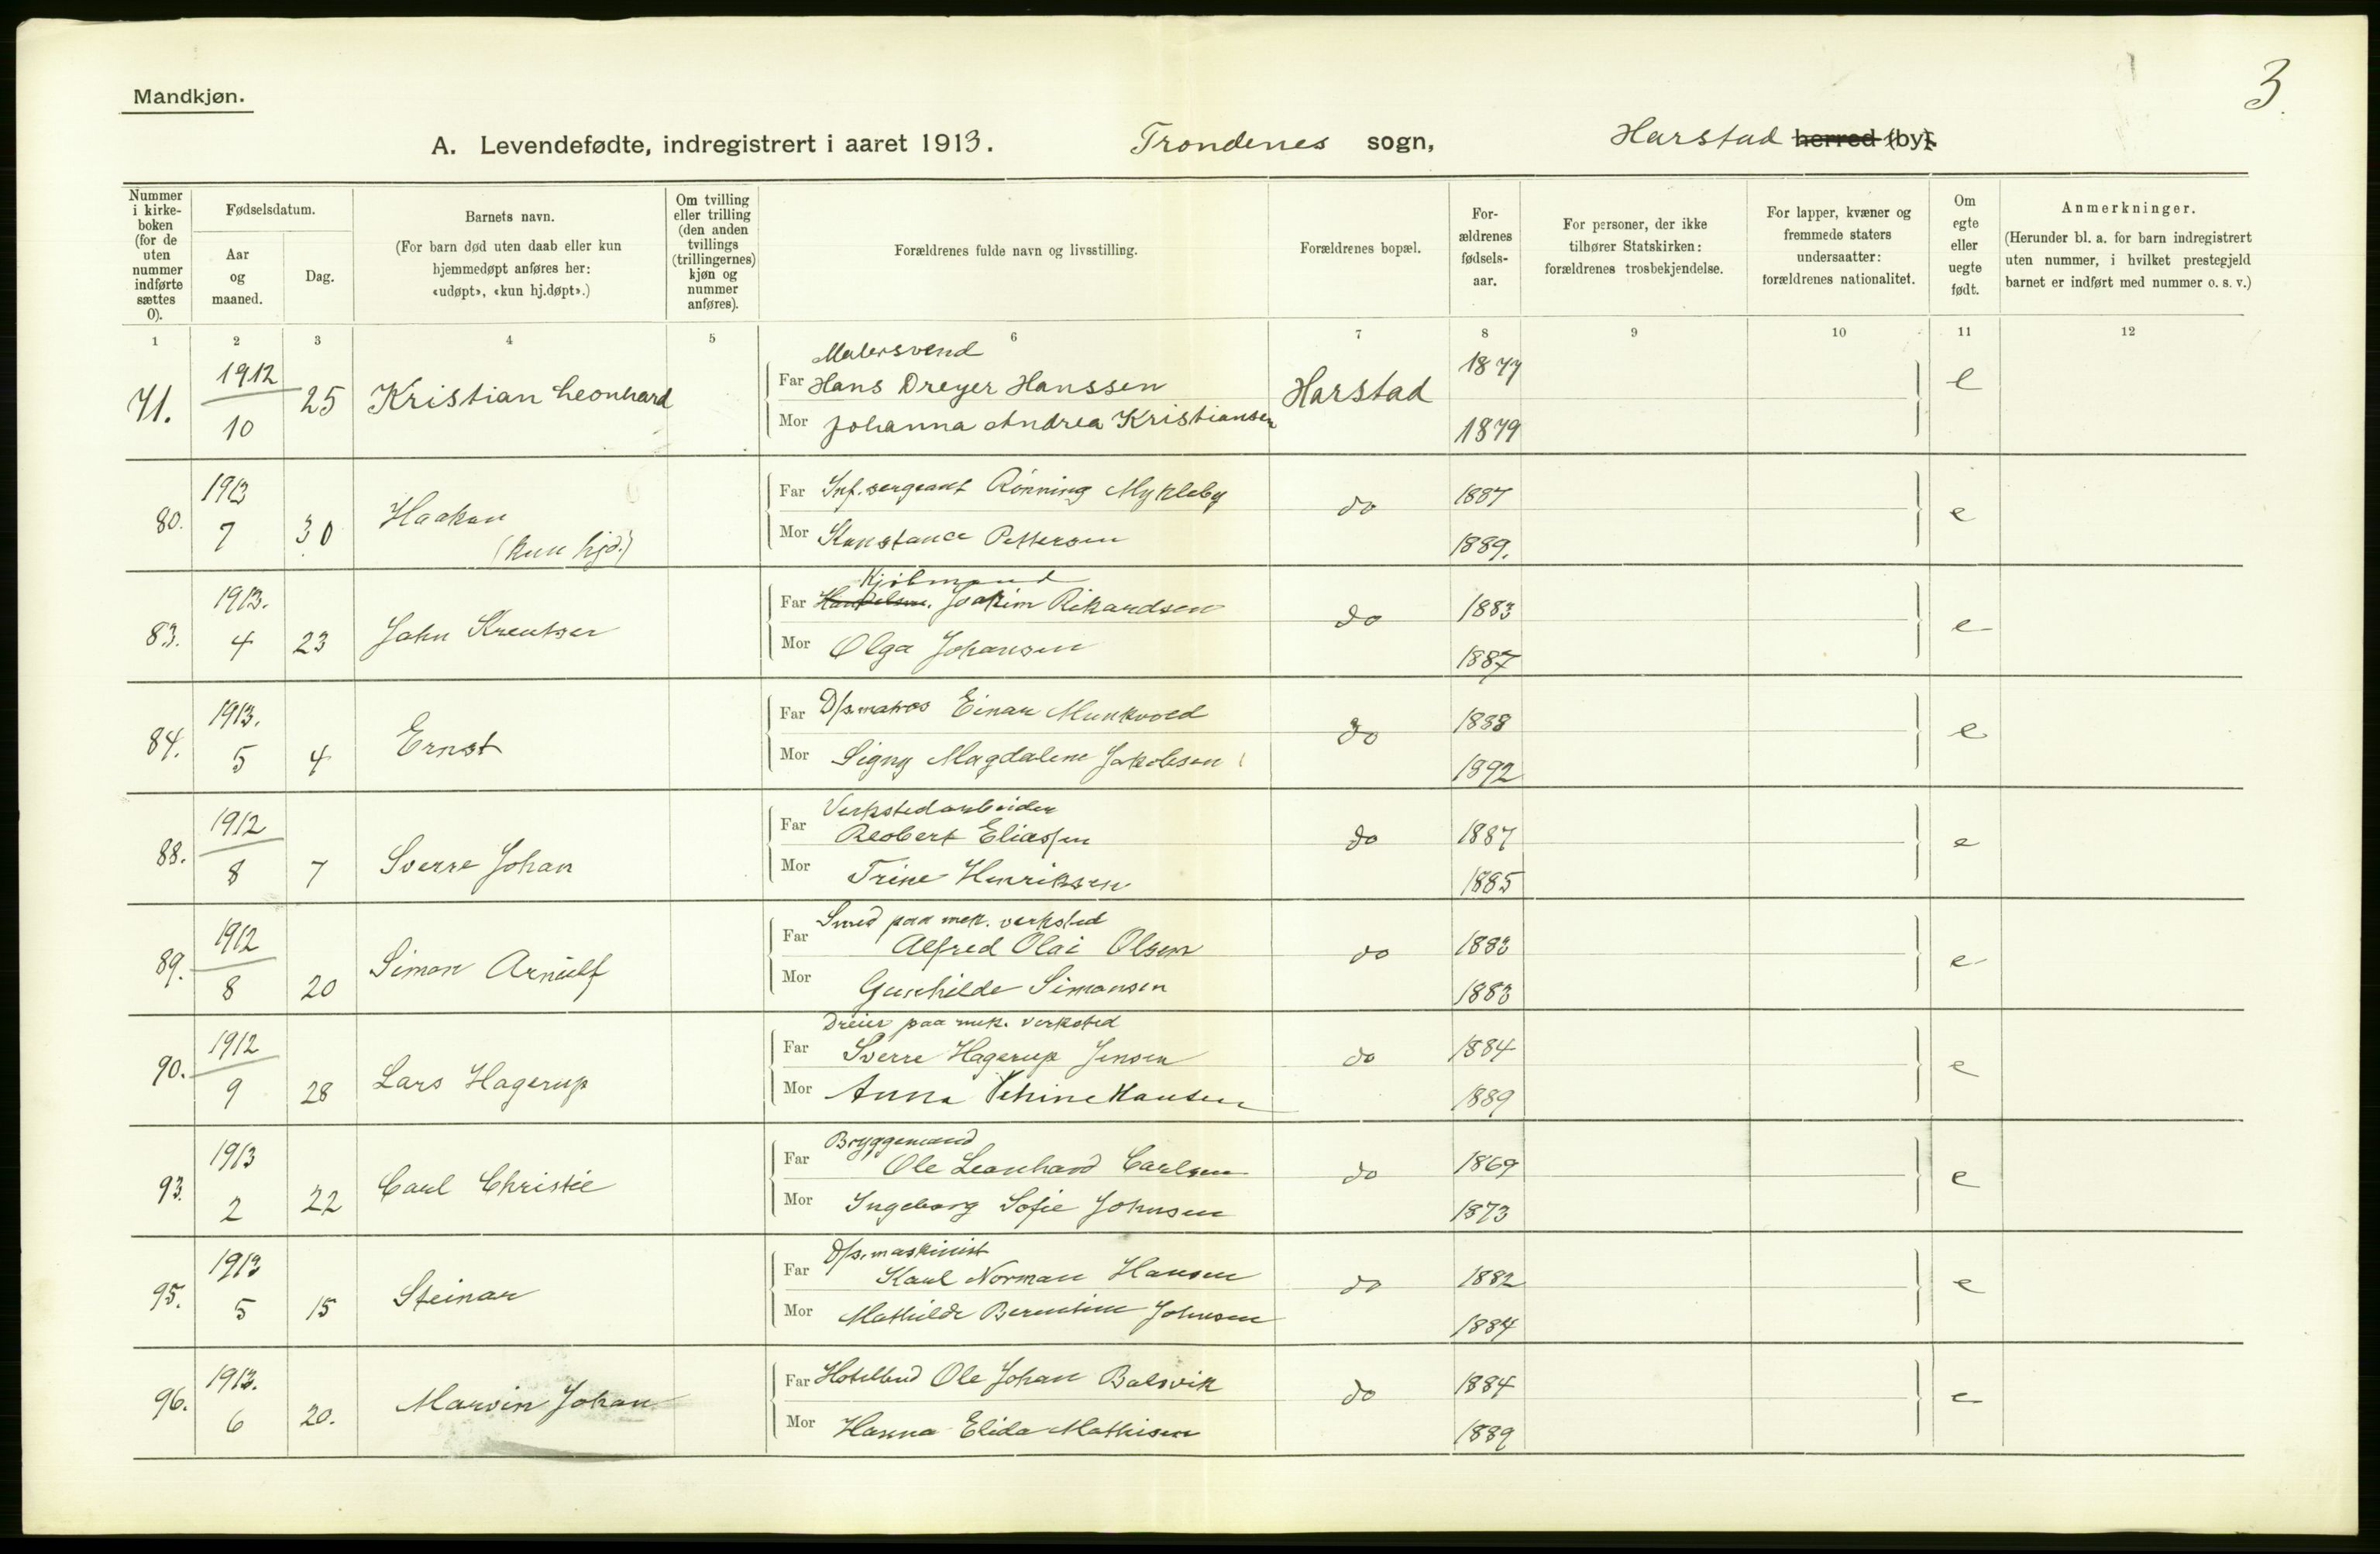 3
Mandkjøn.
A. Levendefødte, indregistrert i aaret 1913. Trondenes sogn, Harstad herred (by).
Nummer i kirke-boken (for de uten nummer indførte sættes 0).
Fødselsdatum.
Aar og maaned.
Dag.
Barnets navn.
(For barn død uten daab eller kun hjemmedøpt anføres her: «udøpt», «kun hj.døpt».)
Om tvilling eller trilling (den anden tvillings (trillingernes) kjøn og nummer anføres).
Forældrenes fulde navn og livsstilling.
Forældrenes bopæl.
For-ældrenes fødsels-aar.
For personer, der ikke tilhører Statskirken: forældrenes trosbekjendelse.
For lapper, kvæner og fremmede staters undersaatter: forældrenes nationalitet.
Om egte eller uegte født.
Anmerkninger.
(Herunder bl. a. for barn indregistrert uten nummer, i hvilket prestegjeld barnet er indført med nummer o. s. v.)
1 2 3 4 5 6 7 8 9 10 11 12
71. 1912 10 25 Kristian Leonhard
Malersvend
Far Hans Dreyer Hanssen Harstad 1877 e
Mor Johanna Andrea Kristiansen 1879
80. 1913 7 30 Haakon
(kun hjd.)
Far Inf. sergeant Rønning Mykleby do 1887 e
Mor Konstance Pettersen 1889.
83. 1913. 4 23 John Kreutzer
Kjøbmand
Far Handelsm. Joakim Rikardsen do 1883 e
Mor Olga Johansen 1887
84. 1913. 5 4 Ernst
Far D/s. matros Einar Munkvold do 1888 e
Mor Signy Magdalene Jakobsen 1892
88. 1912 8 7 Sverre Johan
Verkstedarbeider
Far Robert Eliassen do 1887 e
Mor Trine Henriksen 1885
89. 1912 8 20 Simon Arnulf
Smed paa mek. verksted
Far Alfred Olai Olsen do 1883 e
Mor Gunhilde Simonsen 1883
90. 1912 9 28 Lars Hagerup
Dreier paa mek. verksted
Far Sverre Hagerup Jensen do 1884 e
Mor Anna Hansen 1889
93. 1913 2 22 Carl Christie
Bryggemand
Far Ole Leonhard Carlsen do 1869 e
Mor Ingeborg Sofie Johnsen 1873
95. 1913 5 15 Steinar
D/s. maskinist
Far Karl Norman Hansen do 1882 e
Mor Mathilde Berentine Johnsen 1884
96. 1913. 6 20. Marvin Johan
Far Hotelbud Ole Johan Balsvik do 1884 e
Mor Hanna Elida Mathisen 1889